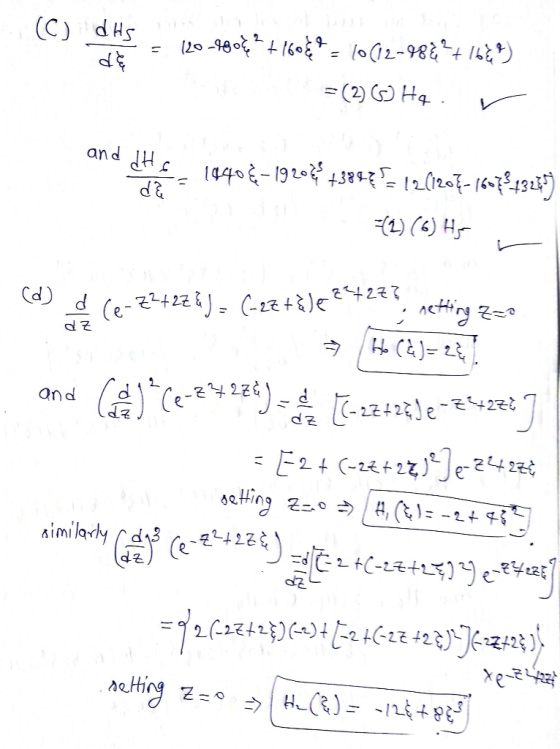 (C) dH5/dξ = 120-480ξ² + 160ξ⁴ = 10(12-48ξ²+16ξ⁴)
= (2)(5) H4. ✓
and dH6/dξ = 1440ξ-1920ξ³+384ξ⁵ = 12(120ξ-160ξ³+32ξ⁵)
=(2)(6) H5 ✓
(d) d/dz (e^-z²+2zξ) = (-2z+ξ)e^z²+2zξ ; setting z=0
⇒ H0(ξ)=2ξ.
and (d/dz)² (e^-z²+2zξ) = d/dz [(-2z+2ξ)e^-z²+2zξ]
= [-2 + (-2z+2ξ)²]e^-z²+2zξ
setting z=0 ⇒ H1(ξ)= -2+4ξ².
similarly (d/dz)³ (e^-z²+2zξ) = d/dz [[-2+(-2z+2ξ)²) e^-z²+2zξ]
= {2(-2z+2ξ)(-2)+[-2+(-2z+2ξ)²](-2z+2ξ)}
×e^-z²+2zξ
setting z=0 ⇒ H2(ξ) = -12ξ+8ξ³